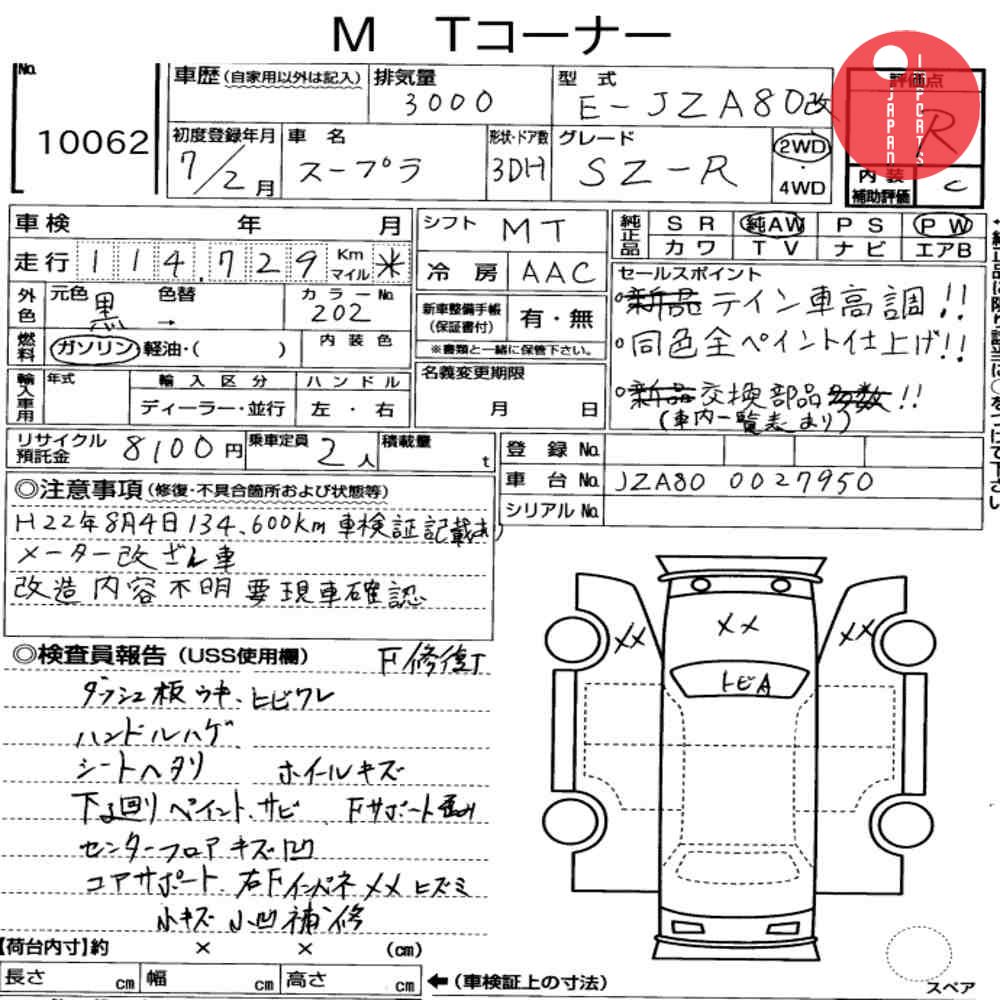 M Tコーナー
No. 10062
車歴 (自家用以外は記入) 排気量 3000
型式 E-JZA80改
評価点 R
IMPCARTS JAPAN
初度登録年月 7/2月
車名 スープラ
形状・ドア数 3DH
グレード SZ-R
2WD・4WD
内装補助評価 C
車検 年 月
走行 114.729 Km マイル ※
シフト MT
冷房 AAC
純正品 SR 純AW PS PW
カワ TV ナビ エアB
外色 元色 黒 → 色替 カラーNo. 202
新車整備手帳 (保証書付) 有・無
※書類と一緒に保管下さい。
セールスポイント
○新品テイン車高調!!
○同色全ペイント仕上げ!!
○新品交換部品多数!!
(車内一覧表あり)
燃料 ガソリン・軽油・( ) 内装色
輸入車用 年式 輸入区分 ハンドル
ディーラー・並行 左・右
名義変更期限
月 日
リサイクル預託金 8100円 乗車定員 2人 積載量 t
登録No.
車台No. JZA80 0027950
シリアルNo.
◎注意事項 (修復・不具合箇所および状態等)
H22年8月4日 134,600km 車検証記載あり
メーター改ざん車
改造内容不明 要現車確認
◎検査員報告 (USS使用欄) F修復
ダッシュ板ウキ、ヒビワレ
ハンドルハゲ
シートヘタリ ホイールキズ
下回りペイント、サビ Fサポート歪み
センターフロアキズ凹
コアサポート、右Fインパネ メメ ヒズミ
小キズ 小凹 補修
XX XX XX
トビA
【荷台内寸】約 × × (cm)
長さ cm 幅 cm 高さ cm
←(車検証上の寸法)
スペア